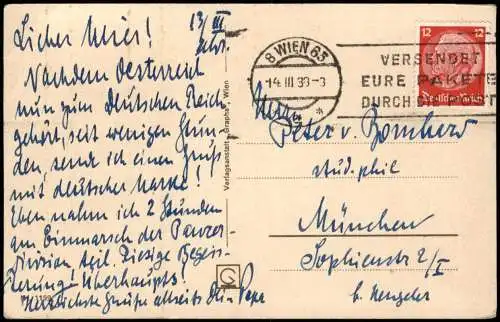 13/III
1938.
Lieber Meier!
Nachdem Oesterreich
nun zum Deutschen Reich
gehört, seit wenigen Stun-
den, sende ich einen Gruß
mit deutscher Marke!
Eben nahm ich 2 Stunden
am Einmarsch der Panzer-
division teil. Riesige Begeis-
terung! Überhaupts!
Herzlichste Grüße allseits Dein Pepe
Verlagsanstalt „Graphia“, Wien
8 WIEN 63
14 III 38-3
VERSENDET
EURE PAKETE
DURCH
12 12
Deutsches Reich
Herrn
Peter v. Bomhard
stud phil
München
Sophienstr 2/I
b. Hengeler
G